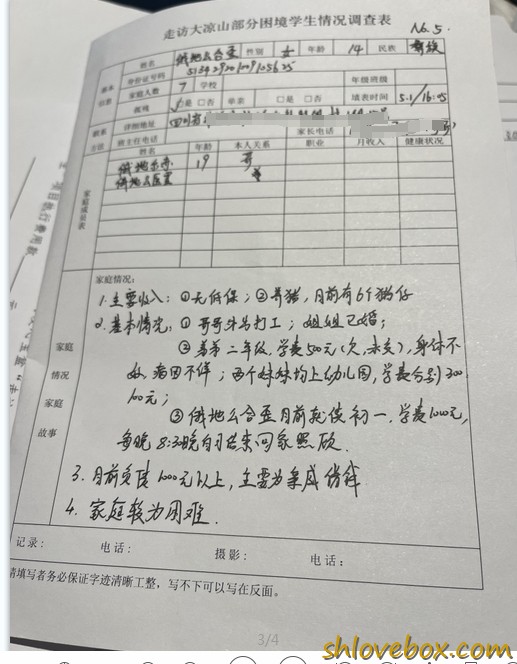 走访大凉山部分困境学生情况调查表
No.5.
姓名 俄地么合歪 性别 女 年龄 14 民族 彝族
基本信息
身份证号码
家庭人数 7 学校 年级班级
孤残 √是 □否 单亲 □是 □否 填表时间 5.1/16:45
联系方法
详细地址 四川省
班主任电话 家长电话
家庭成员表
姓名 年龄 本人关系 职业 月收入 健康状况
俄地 19 哥
家庭情况:
1.主要收入:①无低保;②养猪,目前有6个猪仔
2.基本情况:①哥哥外出打工;姐姐已婚;
③弟弟二年级,学费500元(欠,未交),身体不
好,病因不详;两个妹妹均上幼儿园,学费分别300
100元;
③俄地么合歪目前就读初一,学费1000元,
每晚8:30晚自习结束回家照顾.
3.目前负债1000元以上,主要为亲戚借钱
4.家庭较为困难.
家庭情况家庭故事
记录: 电话: 摄影: 电话:
请填写者务必保证字迹清晰工整,写不下可以写在反面。
3/4
shlovebox.com